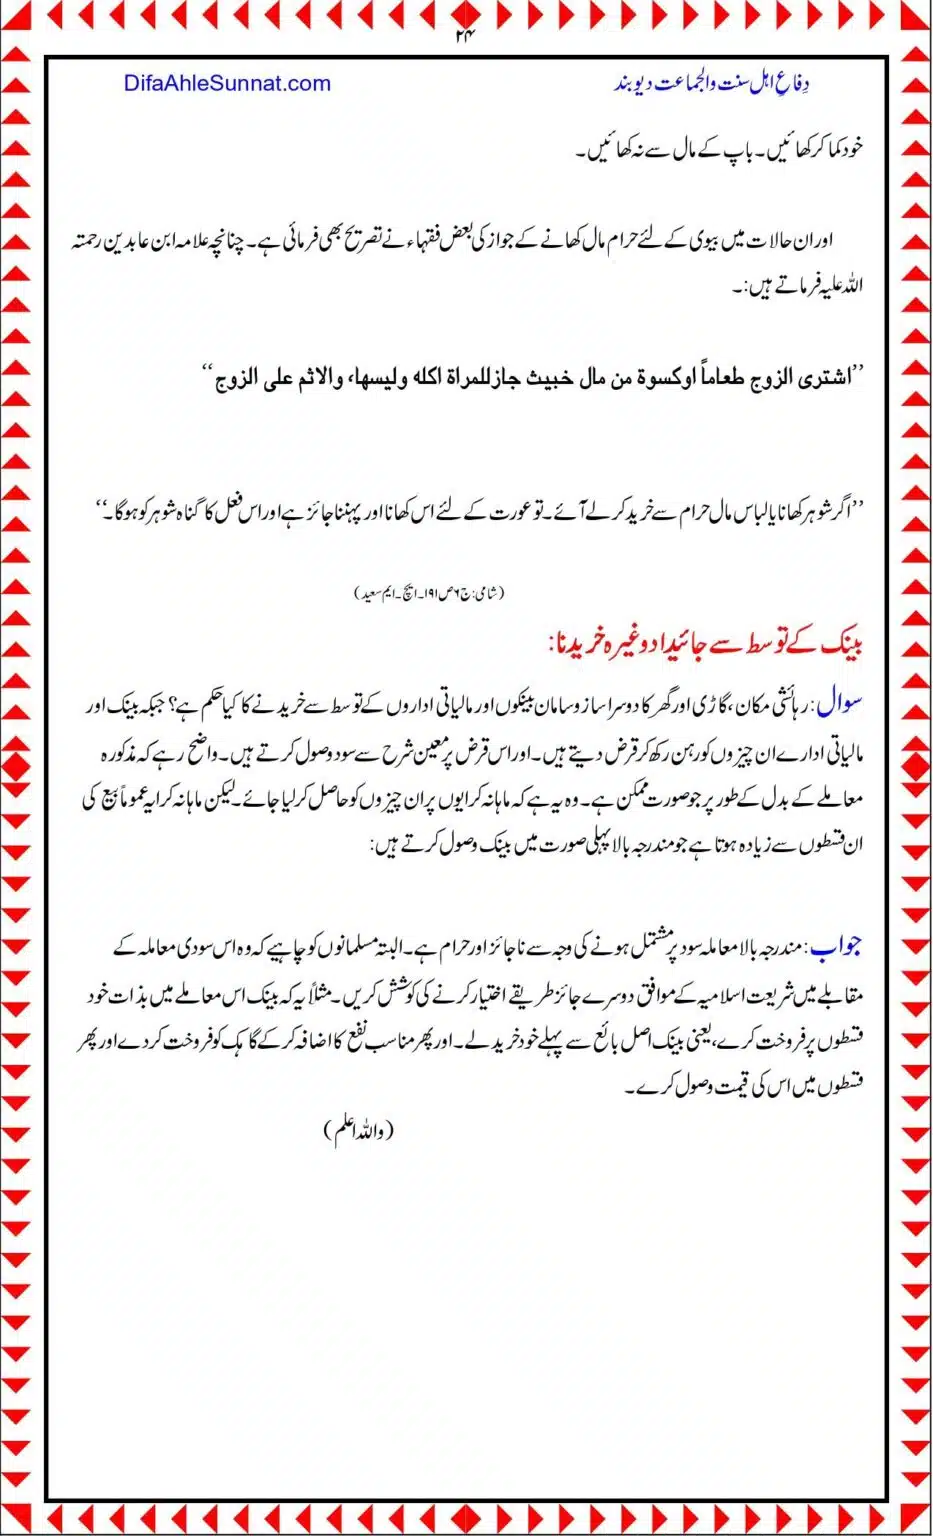 ۲۴
DifaAhleSunnat.com
دِفاعِ اہل سنت والجماعت دیوبند
خود کما کر کھائیں۔ باپ کے مال سے نہ کھائیں۔
اور ان حالات میں بیوی کے لئے حرام مال کھانے کے جواز کی بعض فقہاء نے تصریح بھی فرمائی ہے۔ چنانچہ علامہ ابن عابدین رحمتہ
اللہ علیہ فرماتے ہیں:۔
’’اشتری الزوج طعاماً اوکسوة من مال خبیث جازللمراة اکله ولیسها، والاثم علی الزوج‘‘
’’اگر شوہر کھانا یا لباس مال حرام سے خرید کر لے آئے۔ تو عورت کے لئے اس کھانا اور پہننا جائز ہے اور اس فعل کا گناہ شوہر کو ہوگا۔‘‘
(شامی: ج ۶ ص ۱۹۱۔ ایچ۔ ایم سعید)
بینک کے توسط سے جائیداد وغیرہ خریدنا:
سوال: رہائشی مکان، گاڑی اور گھر کا دوسرا ساز و سامان بینکوں اور مالیاتی اداروں کے توسط سے خریدنے کا کیا حکم ہے؟ جبکہ بینک اور
مالیاتی ادارے ان چیزوں کو رہن رکھ کر قرض دیتے ہیں۔ اور اس قرض پر معین شرح سے سود وصول کرتے ہیں۔ واضح رہے کہ مذکورہ
معاملے کے بدل کے طور پر جو صورت ممکن ہے۔ وہ یہ ہے کہ ماہانہ کرایوں پر ان چیزوں کو حاصل کر لیا جائے۔ لیکن ماہانہ کرایہ عموماً بیع کی
ان قسطوں سے زیادہ ہوتا ہے جو مندرجہ بالا پہلی صورت میں بینک وصول کرتے ہیں:
جواب: مندرجہ بالا معاملہ سود پر مشتمل ہونے کی وجہ سے ناجائز اور حرام ہے۔ البتہ مسلمانوں کو چاہیے کہ وہ اس سودی معاملہ کے
مقابلے میں شریعت اسلامیہ کے موافق دوسرے جائز طریقے اختیار کرنے کی کوشش کریں۔ مثلاً یہ کہ بینک اس معاملے میں بذات خود
قسطوں پر فروخت کرے، یعنی بینک اصل بائع سے پہلے خود خرید لے۔ اور پھر مناسب نفع کا اضافہ کر کے گاہک کو فروخت کر دے اور پھر
قسطوں میں اس کی قیمت وصول کرے۔
(واللہ اعلم)